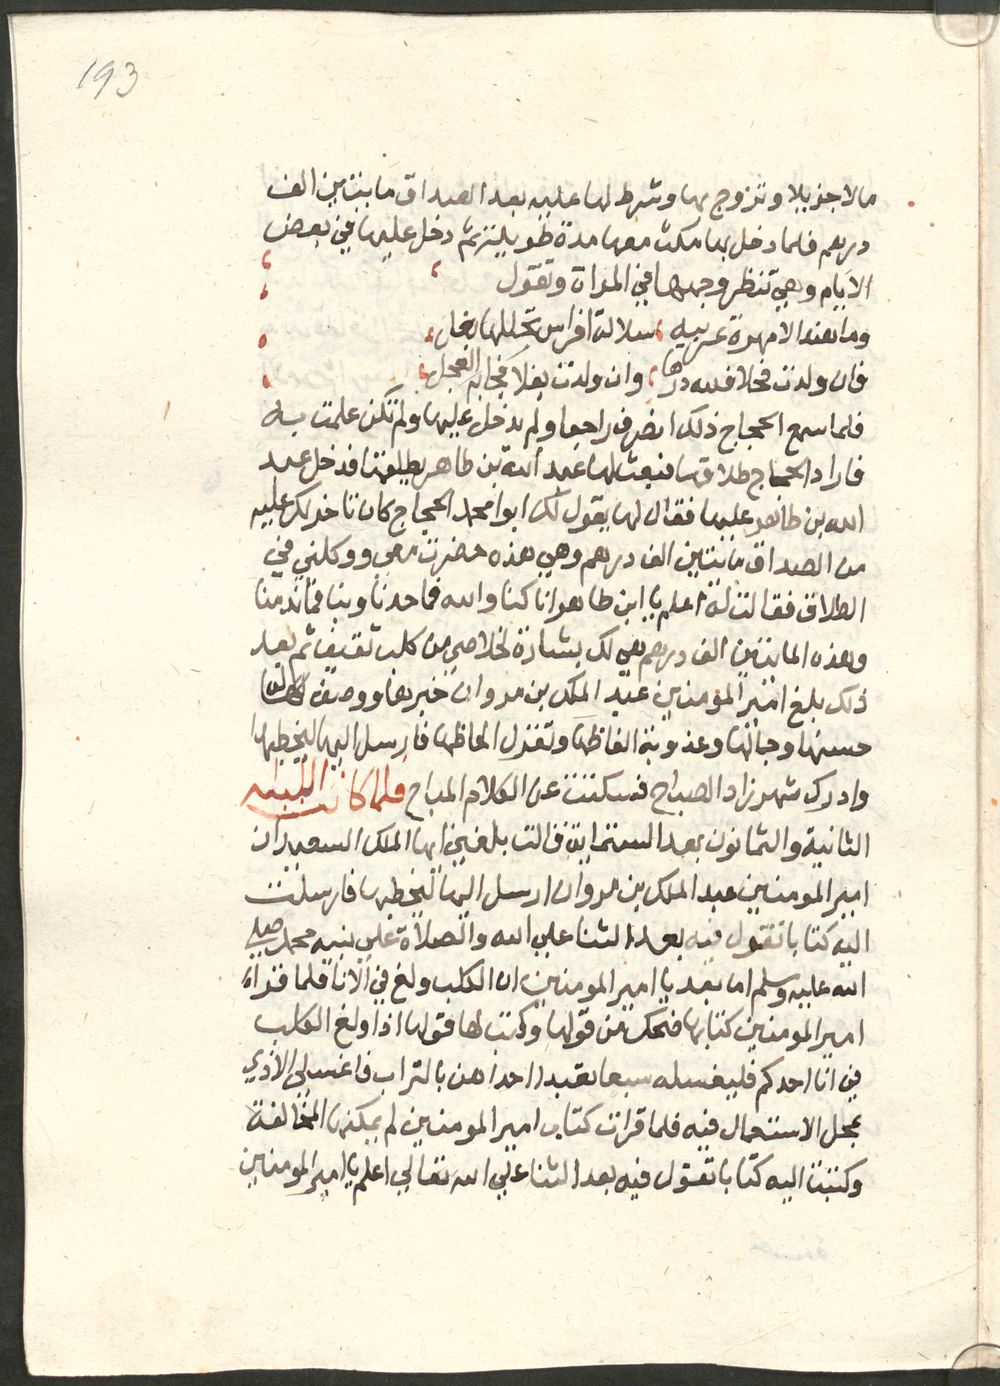 193
مالا جزيلا وتزوج بها وشرط لها عليه بعد الصداق مايتين الف
درهم فلما دخل بها مكث معها مدة طويلة ثم دخل عليها في بعض
الايام وهي تنظر وجهها في المراة وتقول
وما هند الا مهرة عربيه ، سلالة افراس تحللها بغل ،
فان ولدت فحلا فلله درها ، وان ولدت بغلا فجابه الفحل ،
فلما سمع الحجاج ذلك انصرف راجعا ولم يدخل عليها ولم تكن علمت به
فاراد الحجاج طلاقها فبعث لها عبد الله بن طاهر يطلقها فدخل عبد
الله بن طاهر عليها فقال لها يقول لك ابوا محمد الحجاج كان تاخر لك عليه
من الصداق مايتين الف درهم وهي هذه حضرت معي ووكلني في
الطلاق فقالت له اعلم يا ابن طاهر اننا كنا والله فما حدنا وبنا فما ندمنا
وهذه المايتين الف درهم هي لك بشارة بخلاصي من كلب ثقيف ثم بعد
ذلك بلغ امير المومنين عبد الملك بن مروان خبرها ووصف له
حسنها وجمالها وعذوبة الفاظها وتغزل الحاظها فارسل اليها ليخطبها
وادرك شهرزاد الصباح فسكتت عن الكلام المباح فلما كانت الليلة
الثانية والثمانون بعد الستماية قالت بلغني ايها الملك السعيد ان
امير المومنين عبد الملك بن مروان ارسل اليها ليخطبها فارسلت
اليه كتابا تقول فيه بعد الثنا علي الله والصلاة علي نبيه محمد صلي
الله عليه وسلم اما بعد يا امير المومنين ان الكلب ولغ في الانا فلما قراء
امير المومنين كتابها ضحك من قولها وكتب لها قولها اذا ولغ الكلب
في انا احدكم فليغسله سبعا بقيد احداهن بالتراب فاغسلي الاذي
بمحل الاستعمال فيه فلما قرات كتاب امير المومنين لم يمكنها المخالفة
وكتبت اليه كتابا تقول فيه بعد الثنا علي الله تعالي اعلم يا امير المومنين